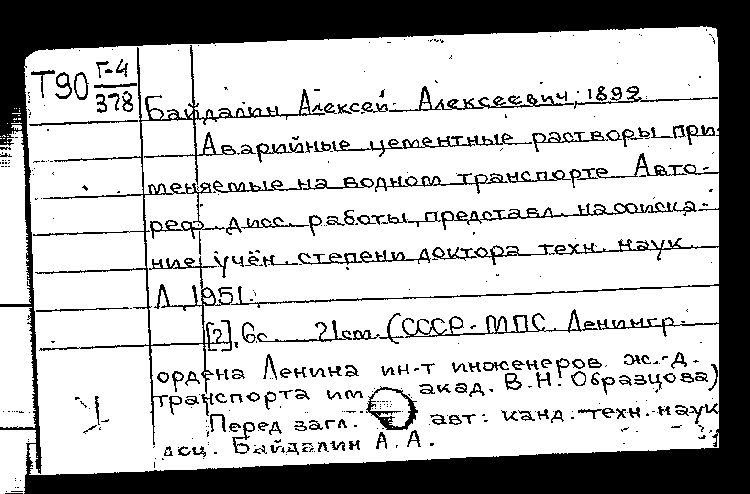 Т90 Г-4
378
Байдалин, Алексей Алексеевич, 1892
Аварийные цементные растворы при
меняемые на водном транспорте. Авто-
реф. дисс. работы, представл. на соиска-
ние учён. степени доктора техн. наук.
Л., 1951.
[2], 6с. 21см. (СССР. МПС. Ленингр.
ордена Ленина ин-т инженеров ж.-д.
транспорта им. акад. В.Н. Образцова)
Перед загл. авт: канд. техн. наук
доц. Байдалин А.А.